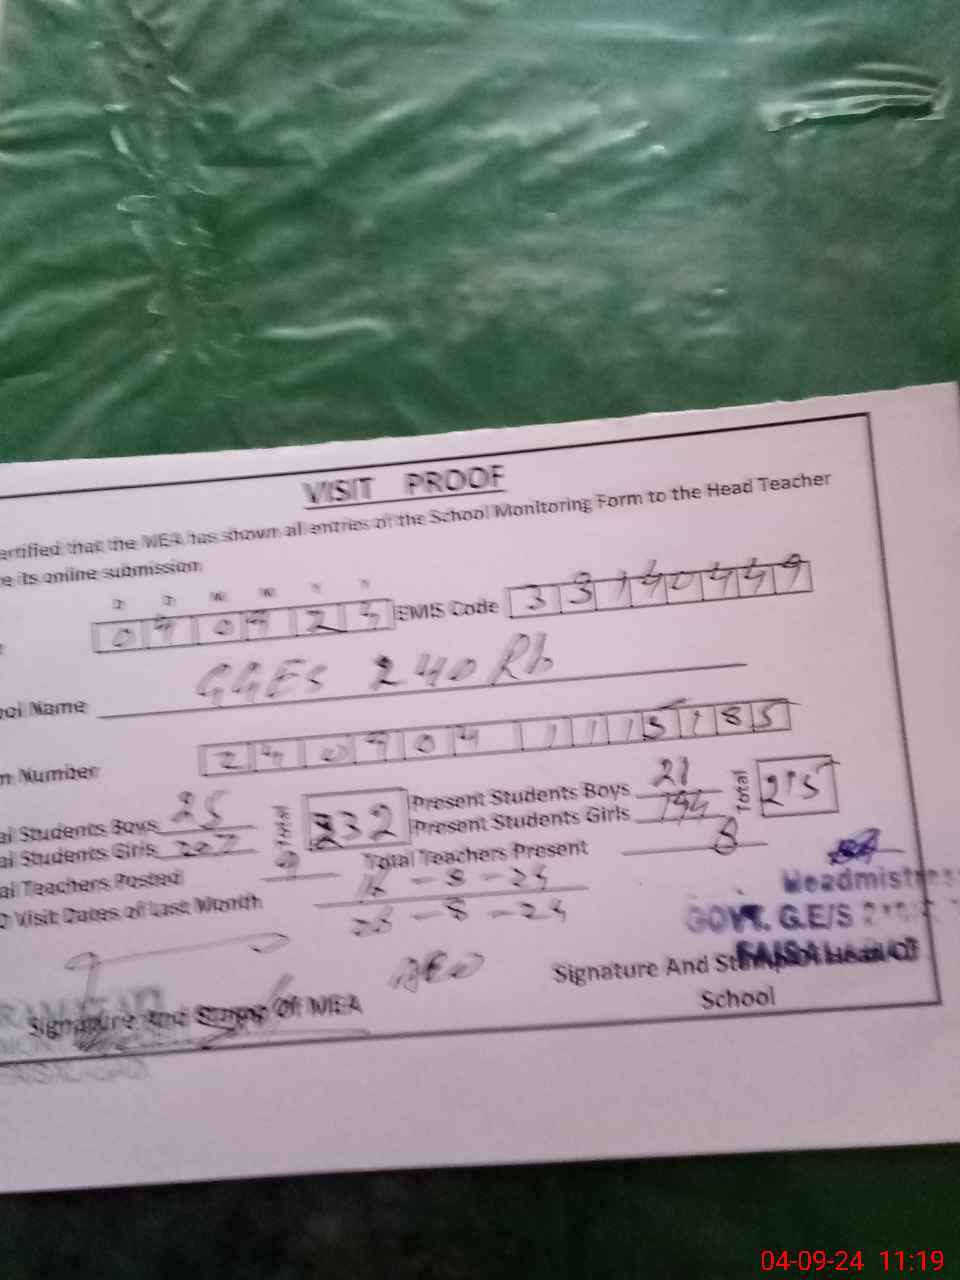 VISIT PROOF
ertified that the MEA has shown all entries of the School Monitoring Form to the Head Teacher
e its online submission
D D M M Y Y
04 09 24 EMIS Code 33140449
ool Name GGES 240 Rb
m Number 240904 1115185
al Students Boys 25 Total 232 Present Students Boys 21 Total 215
al Students Girls 207 Present Students Girls 194
al Teachers Posted 9 Total Teachers Present 8
O Visit Dates of Last Month 16-8-24
28-8-24
AEO
Headmistress
GOVT. G.E/S
Signature And Stamp Of MEA
Signature And Stamp Of Head Of
School
FAISALABAD
04-09-24 11:19